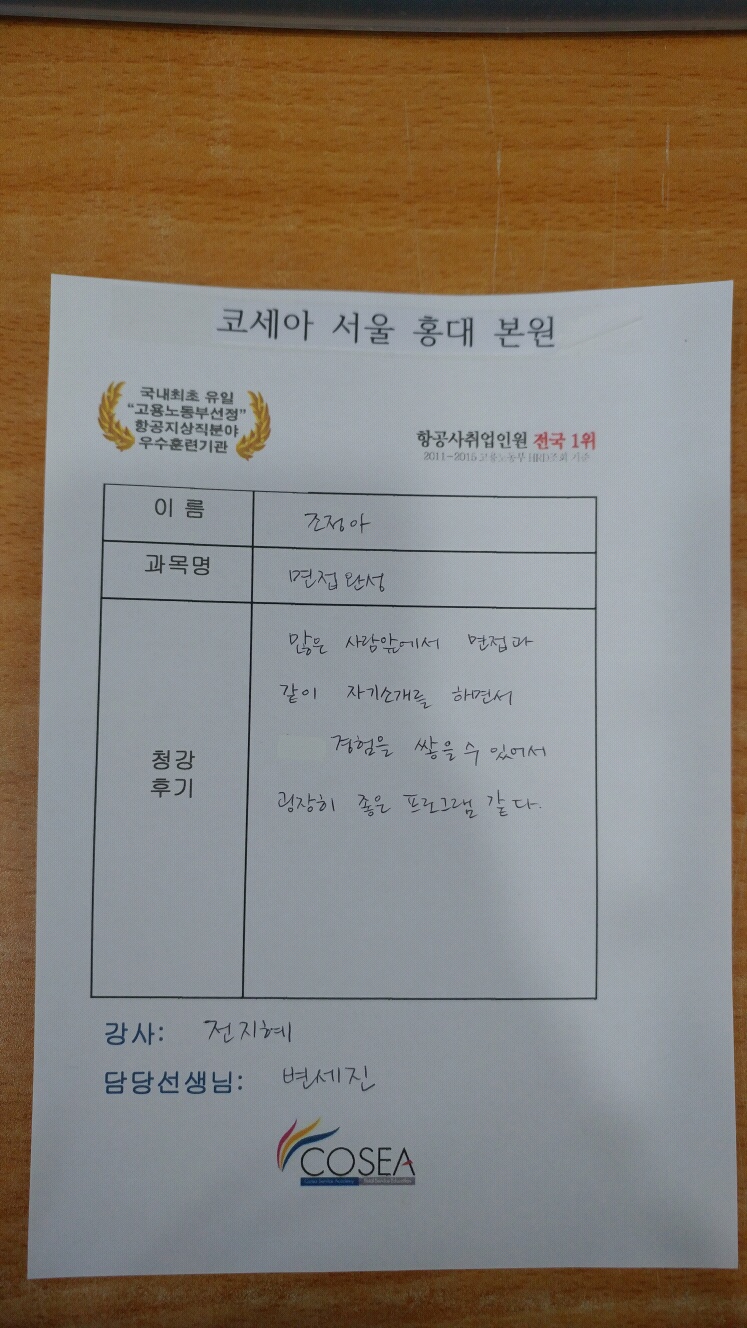 코세아 서울 홍대 본원
국내최초 유일
"고용노동부선정"
항공지상직분야
우수훈련기관
항공사취업인원 전국 1위
2011-2015 고용노동부 HRD조회 기준
이 름
조정아
과목명
면접완성
청강
후기
많은 사람앞에서 면접과
같이 자기소개를 하면서
경험을 쌓을수 있어서
굉장히 좋은 프로그램 같다.
강사: 전지혜
담당선생님: 변세진
COSEA